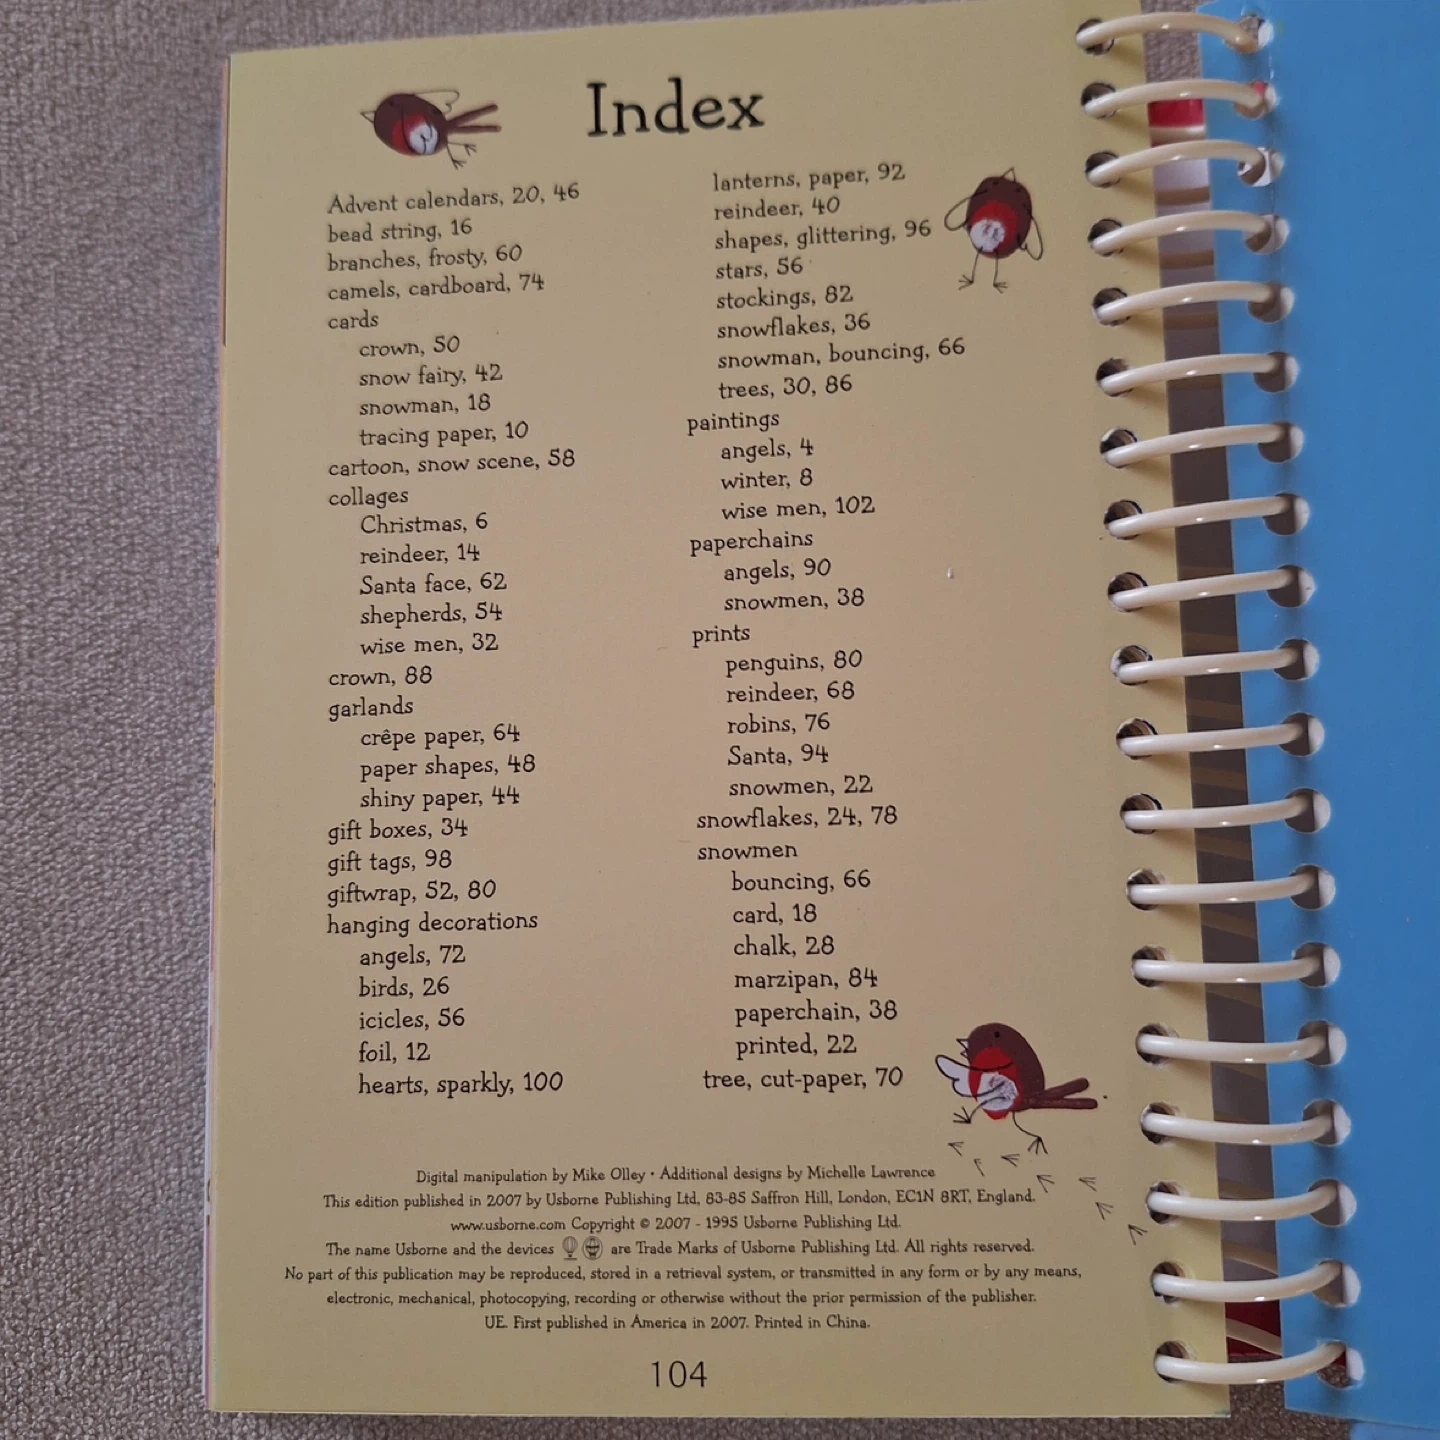 Index
Advent calendars, 20, 46
bead string, 16
branches, frosty, 60
camels, cardboard, 74
cards
crown, 50
snow fairy, 42
snowman, 18
tracing paper, 10
cartoon, snow scene, 58
collages
Christmas, 6
reindeer, 14
Santa face, 62
shepherds, 54
wise men, 32
crown, 88
garlands
crêpe paper, 64
paper shapes, 48
shiny paper, 44
gift boxes, 34
gift tags, 98
giftwrap, 52, 80
hanging decorations
angels, 72
birds, 26
icicles, 56
foil, 12
hearts, sparkly, 100
lanterns, paper, 92
reindeer, 40
shapes, glittering, 96
stars, 56
stockings, 82
snowflakes, 36
snowman, bouncing, 66
trees, 30, 86
paintings
angels, 4
winter, 8
wise men, 102
paperchains
angels, 90
snowmen, 38
prints
penguins, 80
reindeer, 68
robins, 76
Santa, 94
snowmen, 22
snowflakes, 24, 78
snowmen
bouncing, 66
card, 18
chalk, 28
marzipan, 84
paperchain, 38
printed, 22
tree, cut-paper, 70
Digital manipulation by Mike Olley • Additional designs by Michelle Lawrence
This edition published in 2007 by Usborne Publishing Ltd, 83-85 Saffron Hill, London, EC1N 8RT, England.
www.usborne.com Copyright © 2007 - 1995 Usborne Publishing Ltd.
The name Usborne and the devices are Trade Marks of Usborne Publishing Ltd. All rights reserved.
No part of this publication may be reproduced, stored in a retrieval system, or transmitted in any form or by any means,
electronic, mechanical, photocopying, recording or otherwise without the prior permission of the publisher.
UE. First published in America in 2007. Printed in China.
104